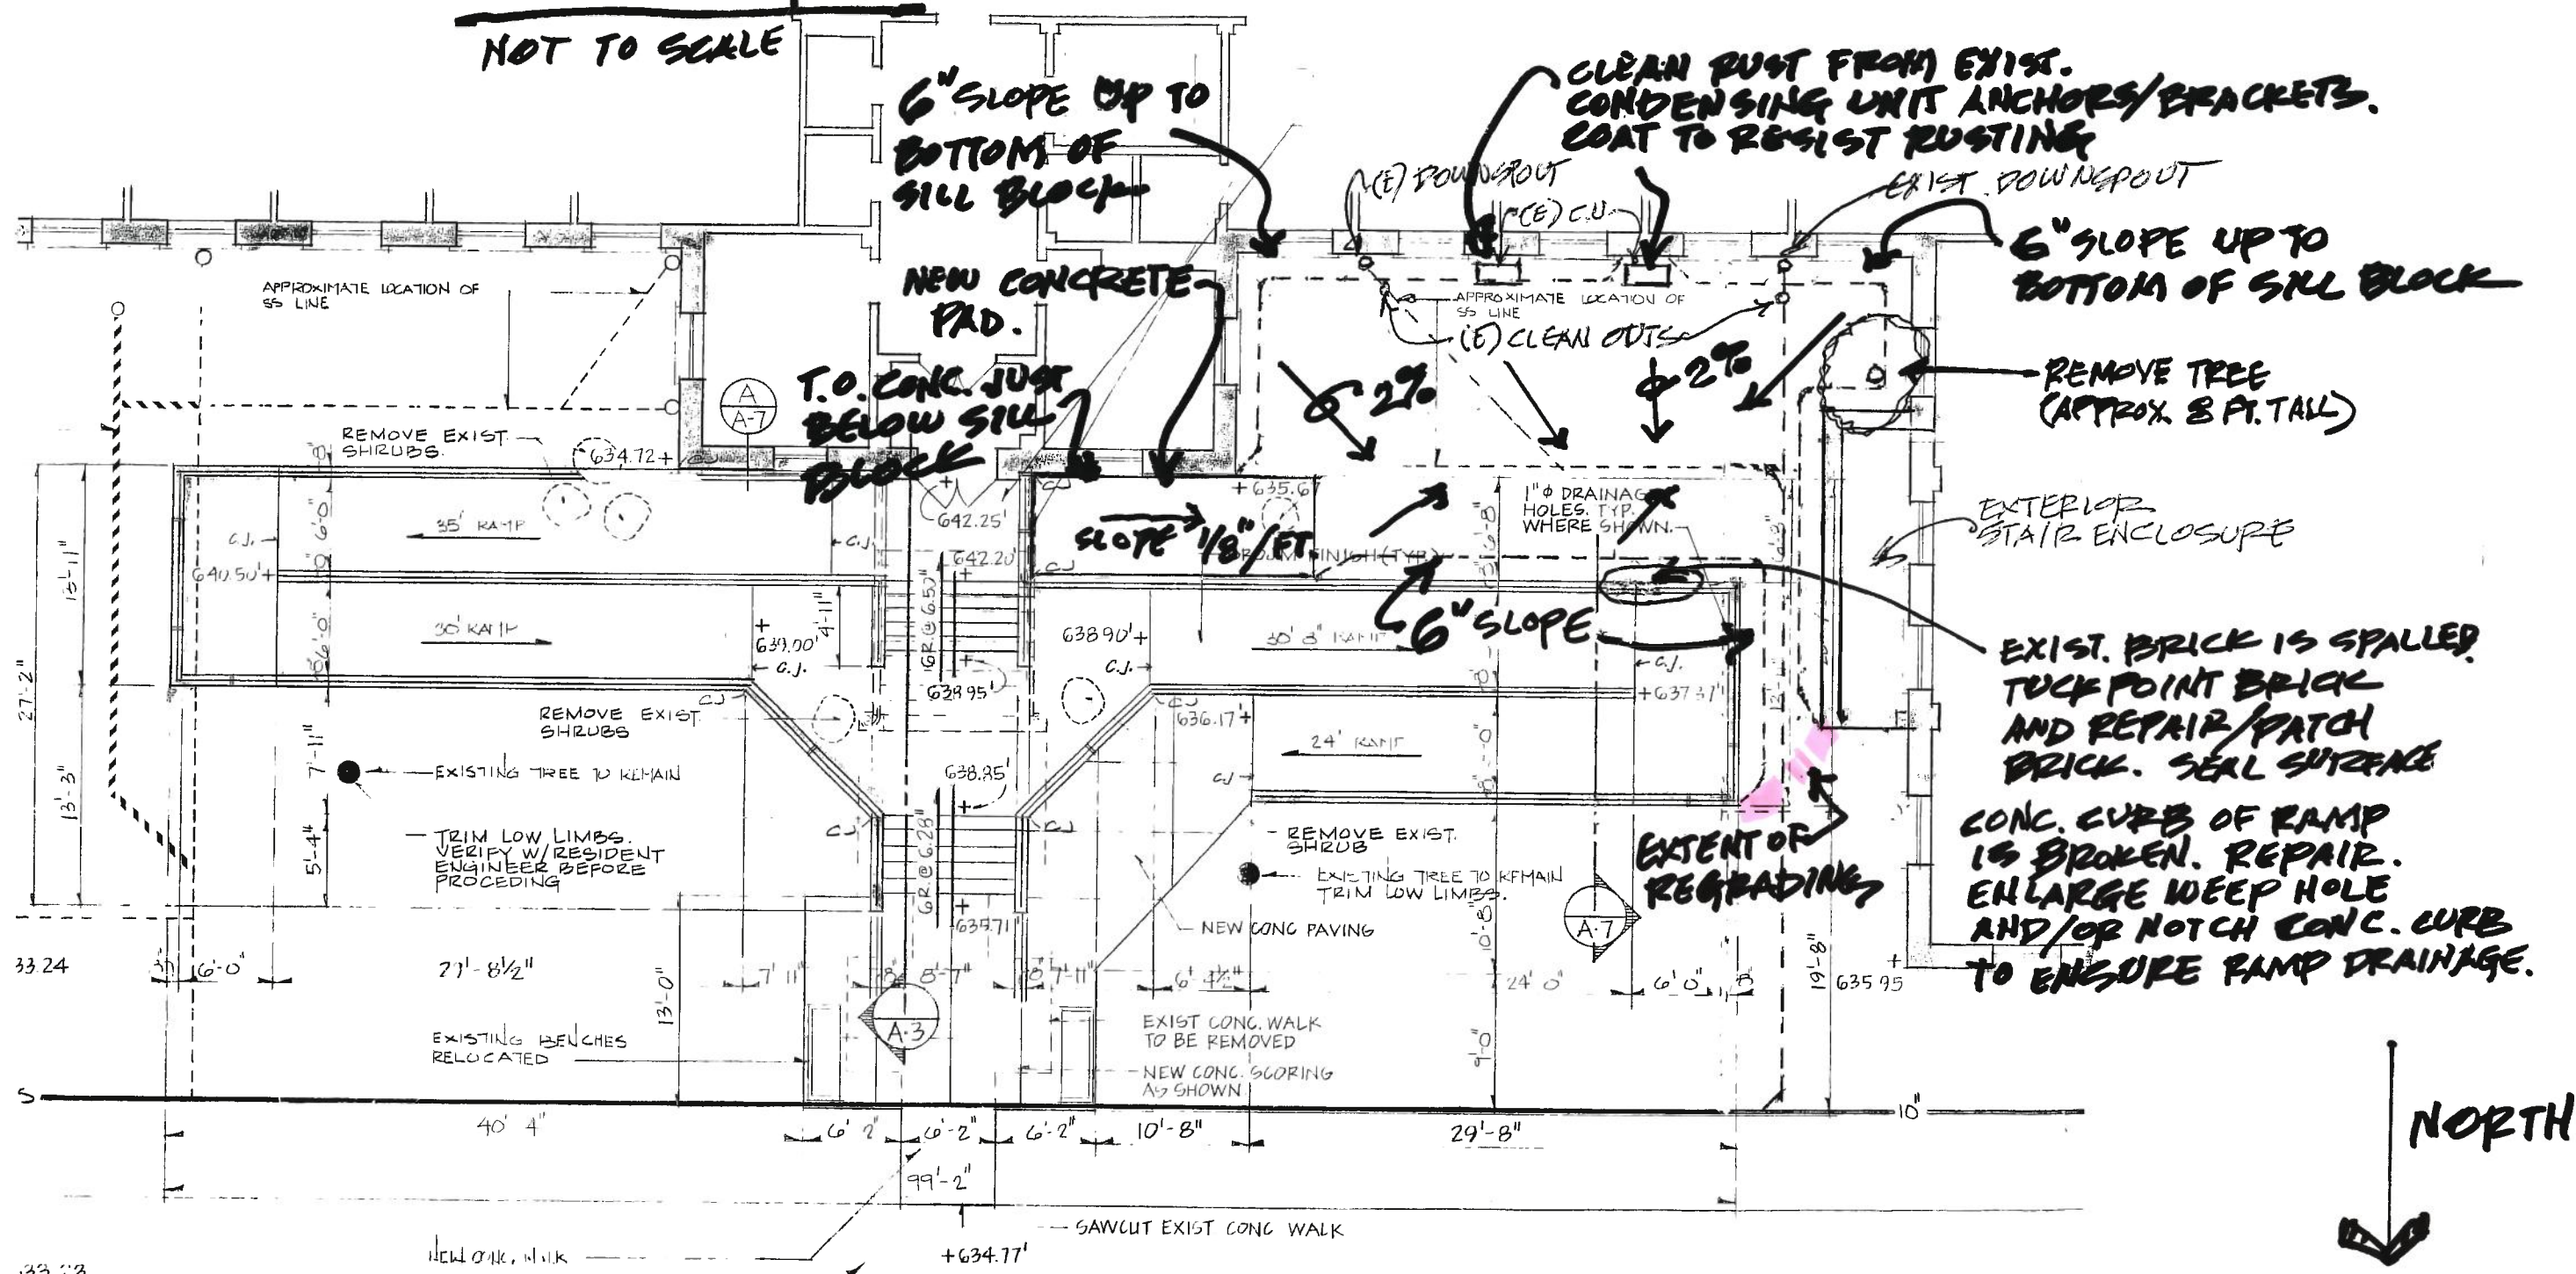 NOT TO SCALE
6" SLOPE UP TO
BOTTOM OF
SILL BLOCK
CLEAN RUST FROM EXIST.
CONDENSING UNIT ANCHORS/BRACKETS.
COAT TO RESIST RUSTING
(E) DOWNSPOUT
(E) C.U.
EXIST. DOWNSPOUT
6" SLOPE UP TO
BOTTOM OF SILL BLOCK
APPROXIMATE LOCATION OF
SS LINE
NEW CONCRETE
PAD.
APPROXIMATE LOCATION OF
SS LINE
(E) CLEAN OUTS
2%
2%
REMOVE TREE
(APPROX. 8 FT. TALL)
A
A-7
T.O. CONC. JUST
BELOW SILL
BLOCK
REMOVE EXIST.
SHRUBS.
634.72+
8"
+635.67
1" Φ DRAINAGE
HOLES. TYP.
WHERE SHOWN.
EXTERIOR
STAIR ENCLOSURE
35' RAMP
C.J.
C.J.
C.J.
6'-0"
642.25'
642.20'
SLOPE 1/8"/FT
BROOM FINISH (TYP.)
6'-8"
640.50'+
13'-11"
27'-2"
13'-3"
30' RAMP
6'-0"
+
639.00'
4'-11"
C.J.
16R.@6.50"
638.90'+
C.J.
30' 8" RAMP
6" SLOPE
C.J.
EXIST. BRICK IS SPALLED.
TUCKPOINT BRICK
AND REPAIR/PATCH
BRICK. SEAL SURFACE
638.95'
+637.37'
636.17'+
REMOVE EXIST.
SHRUBS
CJ
CJ
24' RAMP
CJ
7'-11"
EXISTING TREE TO REMAIN
638.85'
5'-4"
TRIM LOW LIMBS.
VERIFY W/RESIDENT
ENGINEER BEFORE
PROCEDING
CJ
CJ
6R.@6.28"
REMOVE EXIST.
SHRUB
EXISTING TREE TO REMAIN
TRIM LOW LIMBS.
EXTENT OF
REGRADING
CONC. CURB OF RAMP
IS BROKEN. REPAIR.
ENLARGE WEEP HOLE
AND/OR NOTCH CONC. CURB
TO ENSURE RAMP DRAINAGE.
635.71'
NEW CONC PAVING
10'-8"
A-7
33.24
6'-0"
27'-8½"
7' 11"
8"
8'-7"
8"
7'-11"
6' 4½"
24' 0"
6'0"
8"
19'-8"
635.95
13'-0"
A-3
EXISTING BENCHES
RELOCATED
EXIST CONC. WALK
TO BE REMOVED
NEW CONC. SCORING
AS SHOWN
9'-0"
S
10"
40' 4"
6' 2"
6'-2"
6'-2"
10'-8"
29'-8"
NORTH
99'-2"
SAWCUT EXIST CONC WALK
NEW CONC. WALK
+634.77'